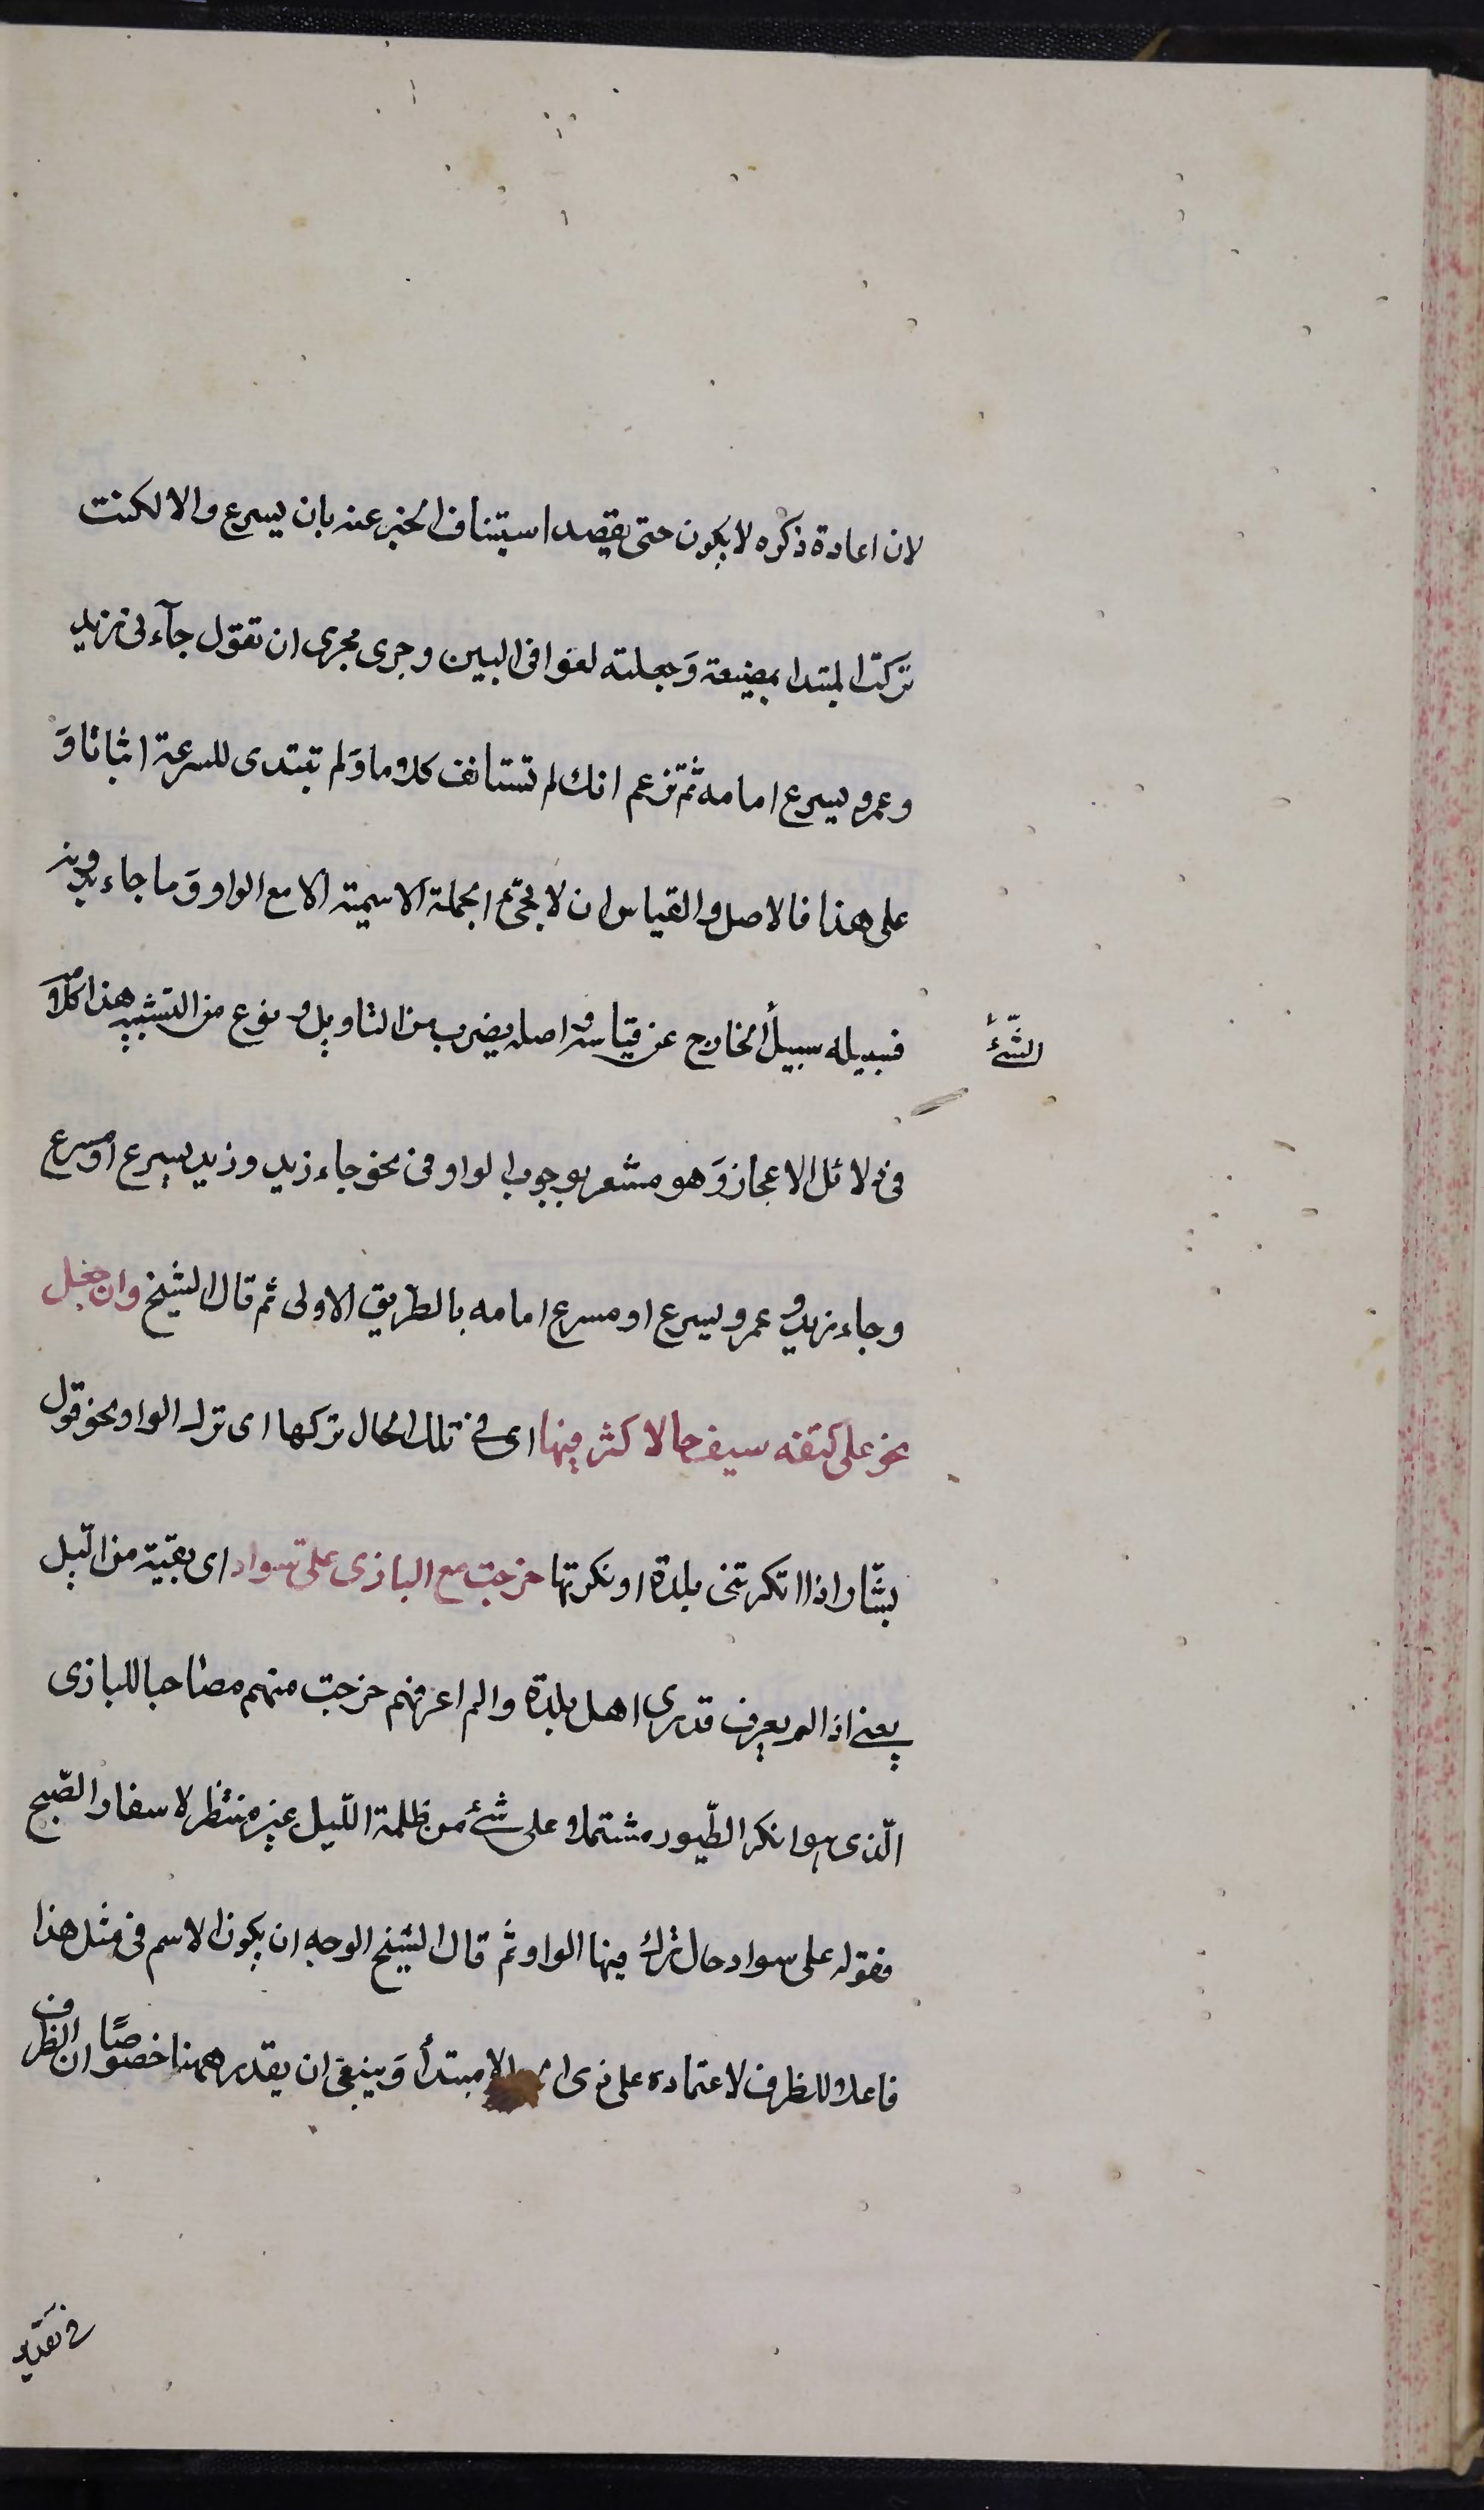 لان اعادة ذكره لا يكون حتى يقصد استيناف الخبر عنه بان يسرع والا لكنت
تركت المبتدا بمضيعة وَجعلته لغوا فى البين وجرى مجرى ان تقول جآء لى زيد
وعمرو يسرع امامه ثمّ تزعم انك لم تستانف كلاما وَلم تبتدى للسرعة اثباتا وَ
على هذا فالاصل والقياس ان لا يجئ الجملة الاسمية الا مع الواو وَما جاء بدونه
فسبيله سبيل الخارج عن قياسه واصله بضرب من التاويل و نوع من التشبيه هذا كلامه
الشّئ
فى دلائل الاعجاز وَهو مشعر بوجوب الواو فى نحو جاء زيد وزيد يسرع او مسرع
وجاء زيد و عمرو يسرع او مسرع امامه بالطّريق الاولى ثم قال الشيخ وان جعل
نحو على كتفه سيف حالا كثر فيها اى فى تلك الحال تركها اى ترك الواو نحو قول
بشّار اذا انكرتنى بلدة او نكرتها خرجت مع البازى علىّ سواد اى بقيّة من الّيل
يعنى اذا لم يعرف قدرى اهل بلدة والم اعرفهم خرجت منهم مصاحبا للبازى
الّذى هو انكر الطّيور مشتملا على شئ من ظلمة اللّيل غير منتظر لاسفار الصّبح
فقوله على سواد حال ترك فيها الواو ثم قال الشيخ الوجه ان يكون الاسم فى مثل هذا
فاعلا للظرف لاعتماده على ذى الا مبتدأ وَينبغى ان يقدر ههنا خصوصًا ان الظرف
فى تقدير